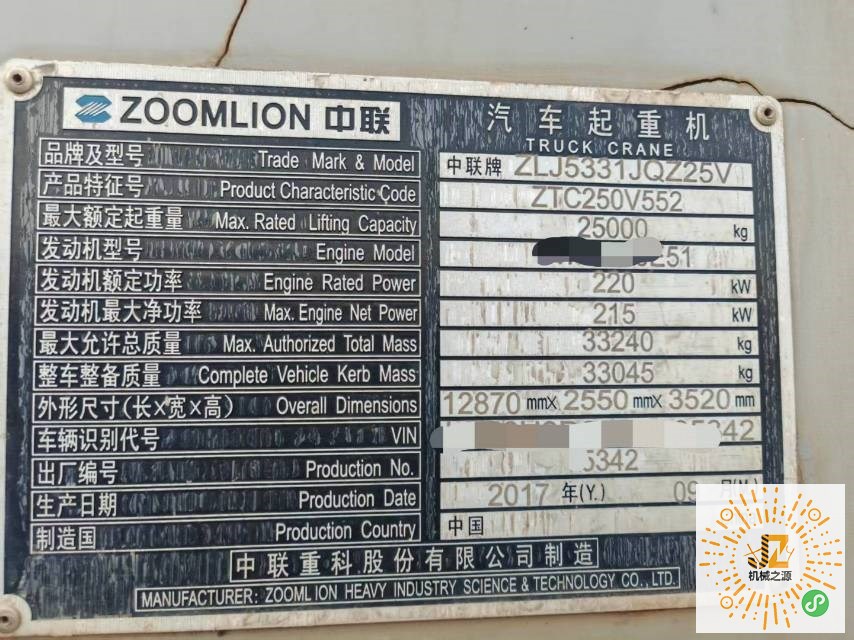 ZOOMLION 中联
汽车起重机
TRUCK CRANE
品牌及型号 Trade Mark & Model 中联牌 ZLJ5331JQZ25V
产品特征号 Product Characteristic Code ZTC250V552
最大额定起重量 Max. Rated Lifting Capacity 25000 kg
发动机型号 Engine Model 51
发动机额定功率 Engine Rated Power 220 kW
发动机最大净功率 Max. Engine Net Power 215 kW
最大允许总质量 Max. Authorized Total Mass 33240 kg
整车整备质量 Complete Vehicle Kerb Mass 33045 kg
外形尺寸(长×宽×高) Overall Dimensions 12870 mm× 2550 mm× 3520 mm
车辆识别代号 VIN 342
出厂编号 Production No. 5342
生产日期 Production Date 2017 年(Y.) 09 月(M.)
制造国 Production Country 中国
中联重科股份有限公司制造
MANUFACTURER: ZOOMLION HEAVY INDUSTRY SCIENCE & TECHNOLOGY CO., LTD.
JZ
机械之源